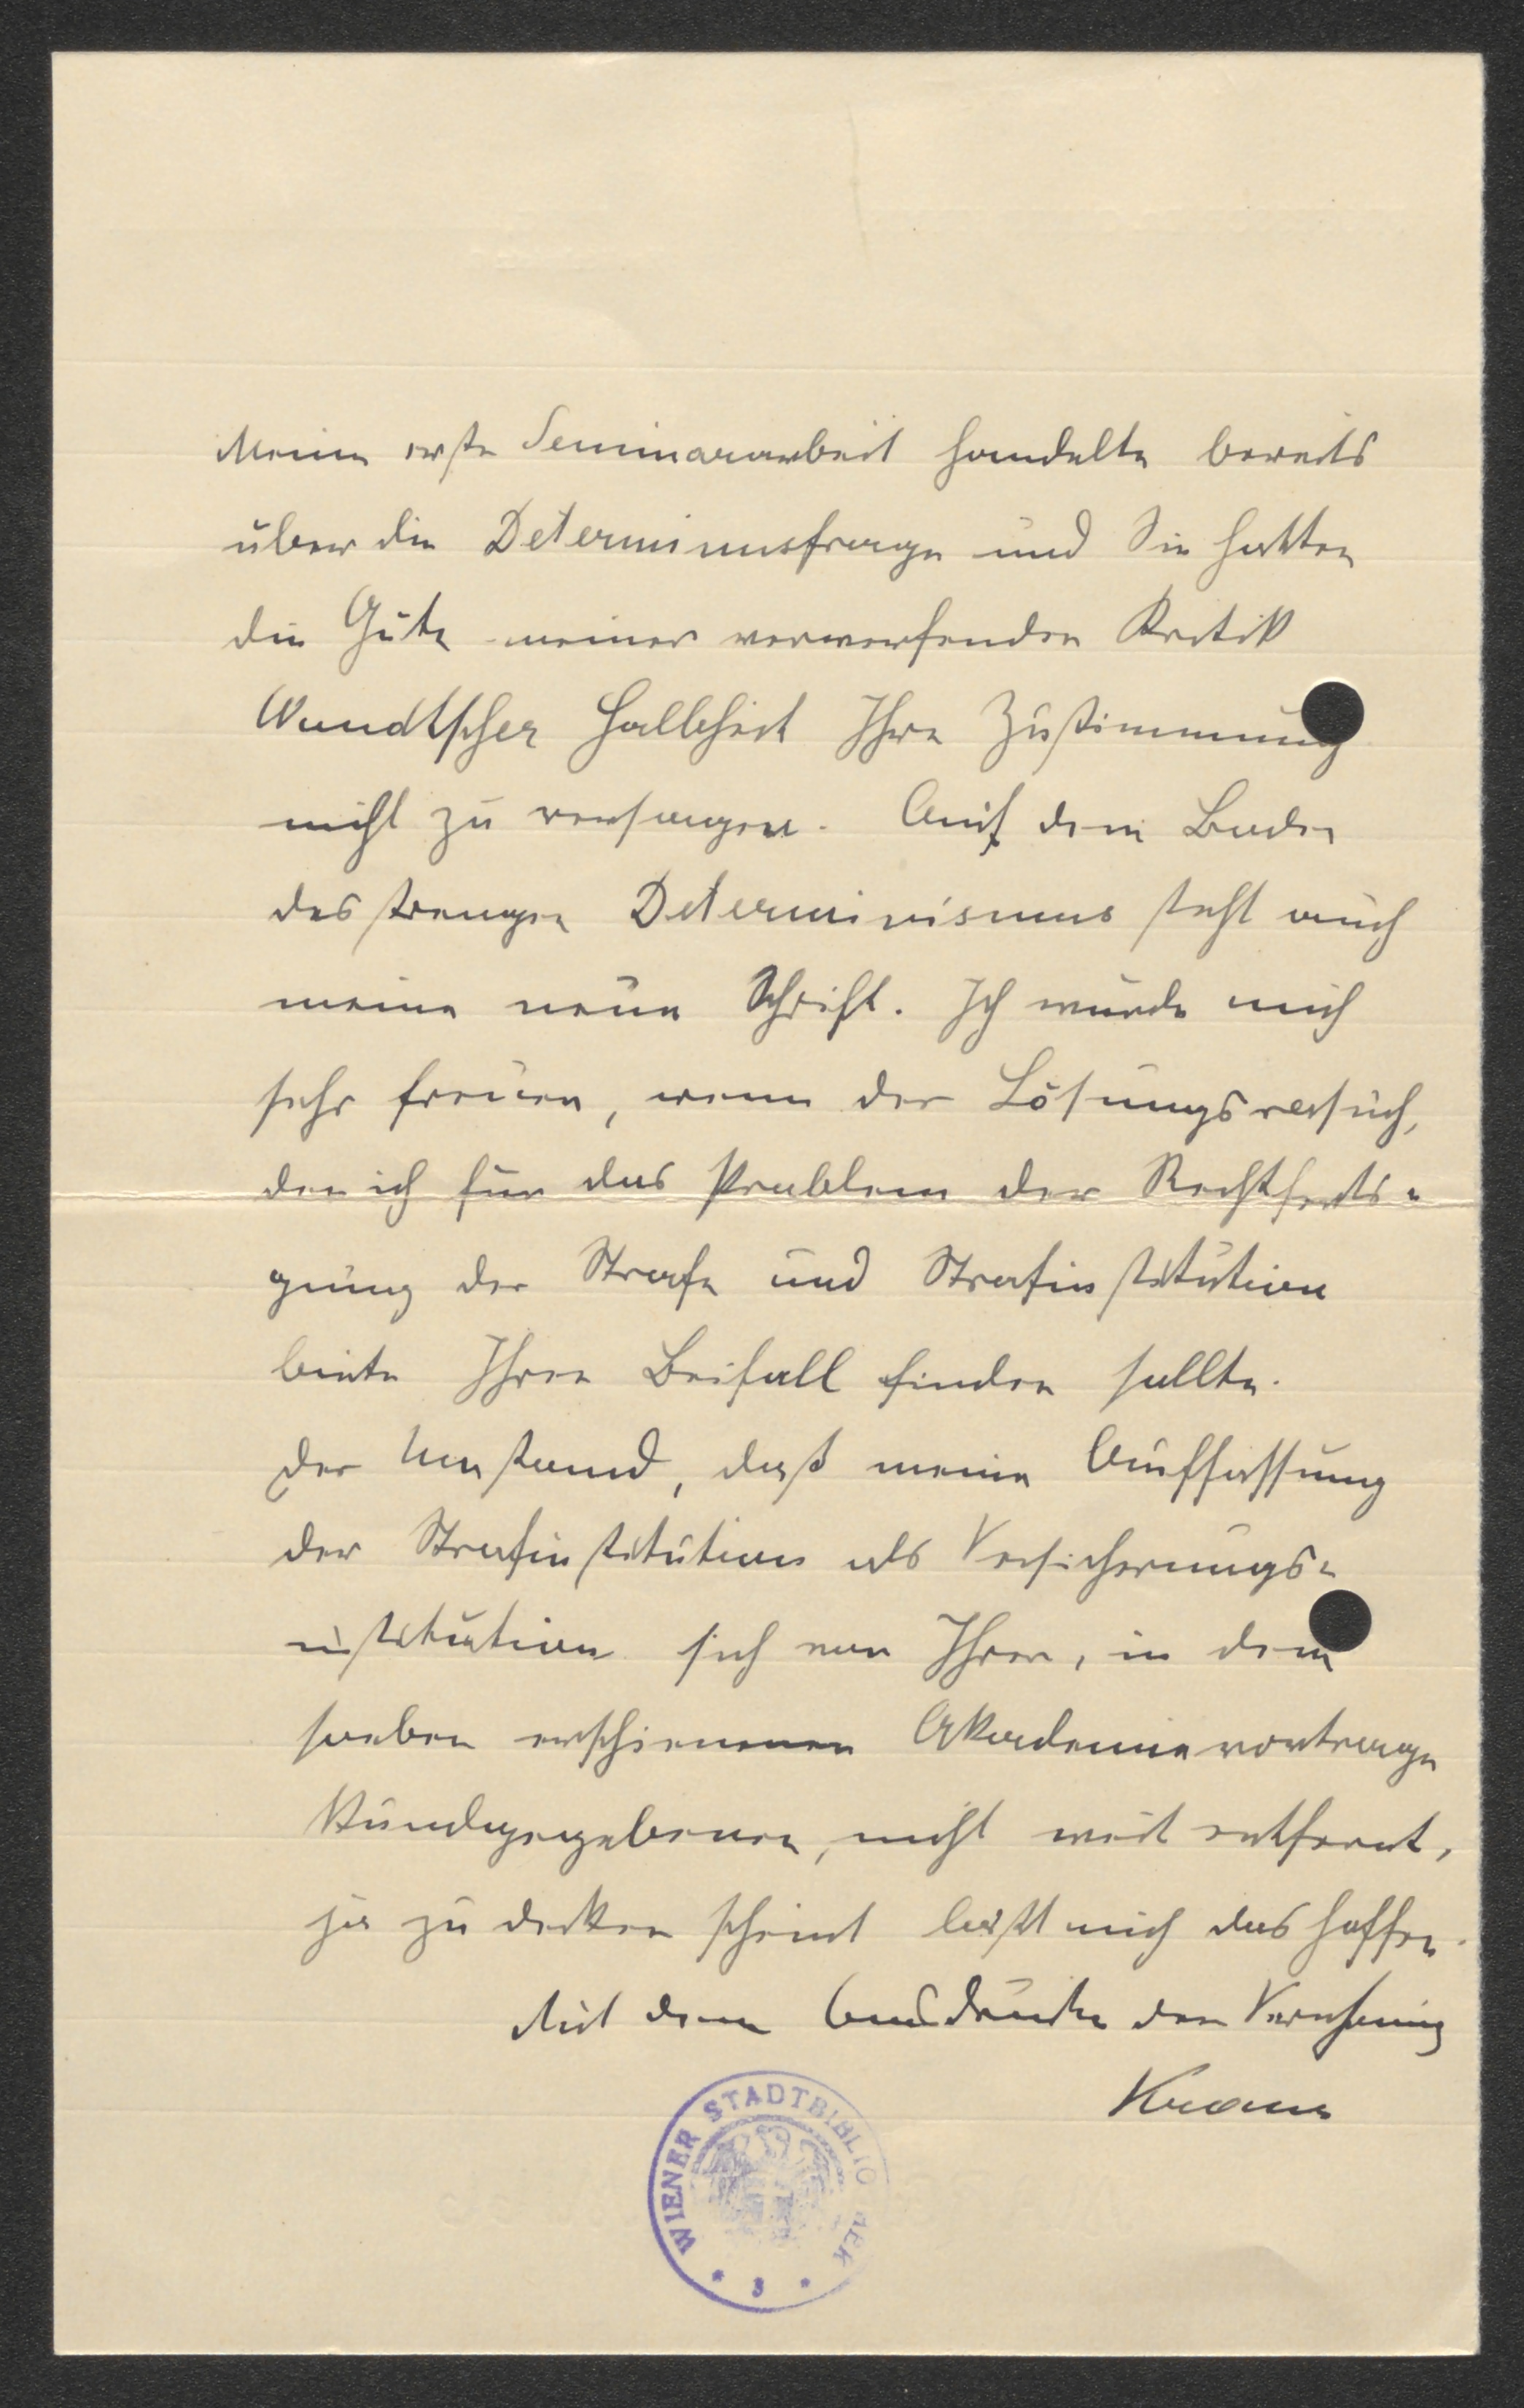 Meine erste Seminararbeit handelte bereits
über die Determinusfrage und Sie hatten
die Güte meiner verwerfenden Kritik
Wundtscher Halbheit Ihre Zustimmung
nicht zu versagen. Auf dem Boden
des strengen Determinismus steht auch
meine neue Schrift. Ich würde mich
sehr freuen, wenn der Lösungsversuch,
den ich für das Problem der Rechtferti-
gung der Strafe und Strafinstitution
biete Ihren Beifall finden sollte.
Der Umstand, daß meine Auffassung
der Strafinstitution als Versicherungs-
institution sich von Ihrer, in dem
soeben erschienenen Akademievortrage
kundgegebenen, nicht weit entfernt,
ja zu decken scheint läßt mich das hoffen.
Mit dem Ausdrucke der Verehrung
Kraus
WIENER STADTBIBLIOTHEK
* 3 *